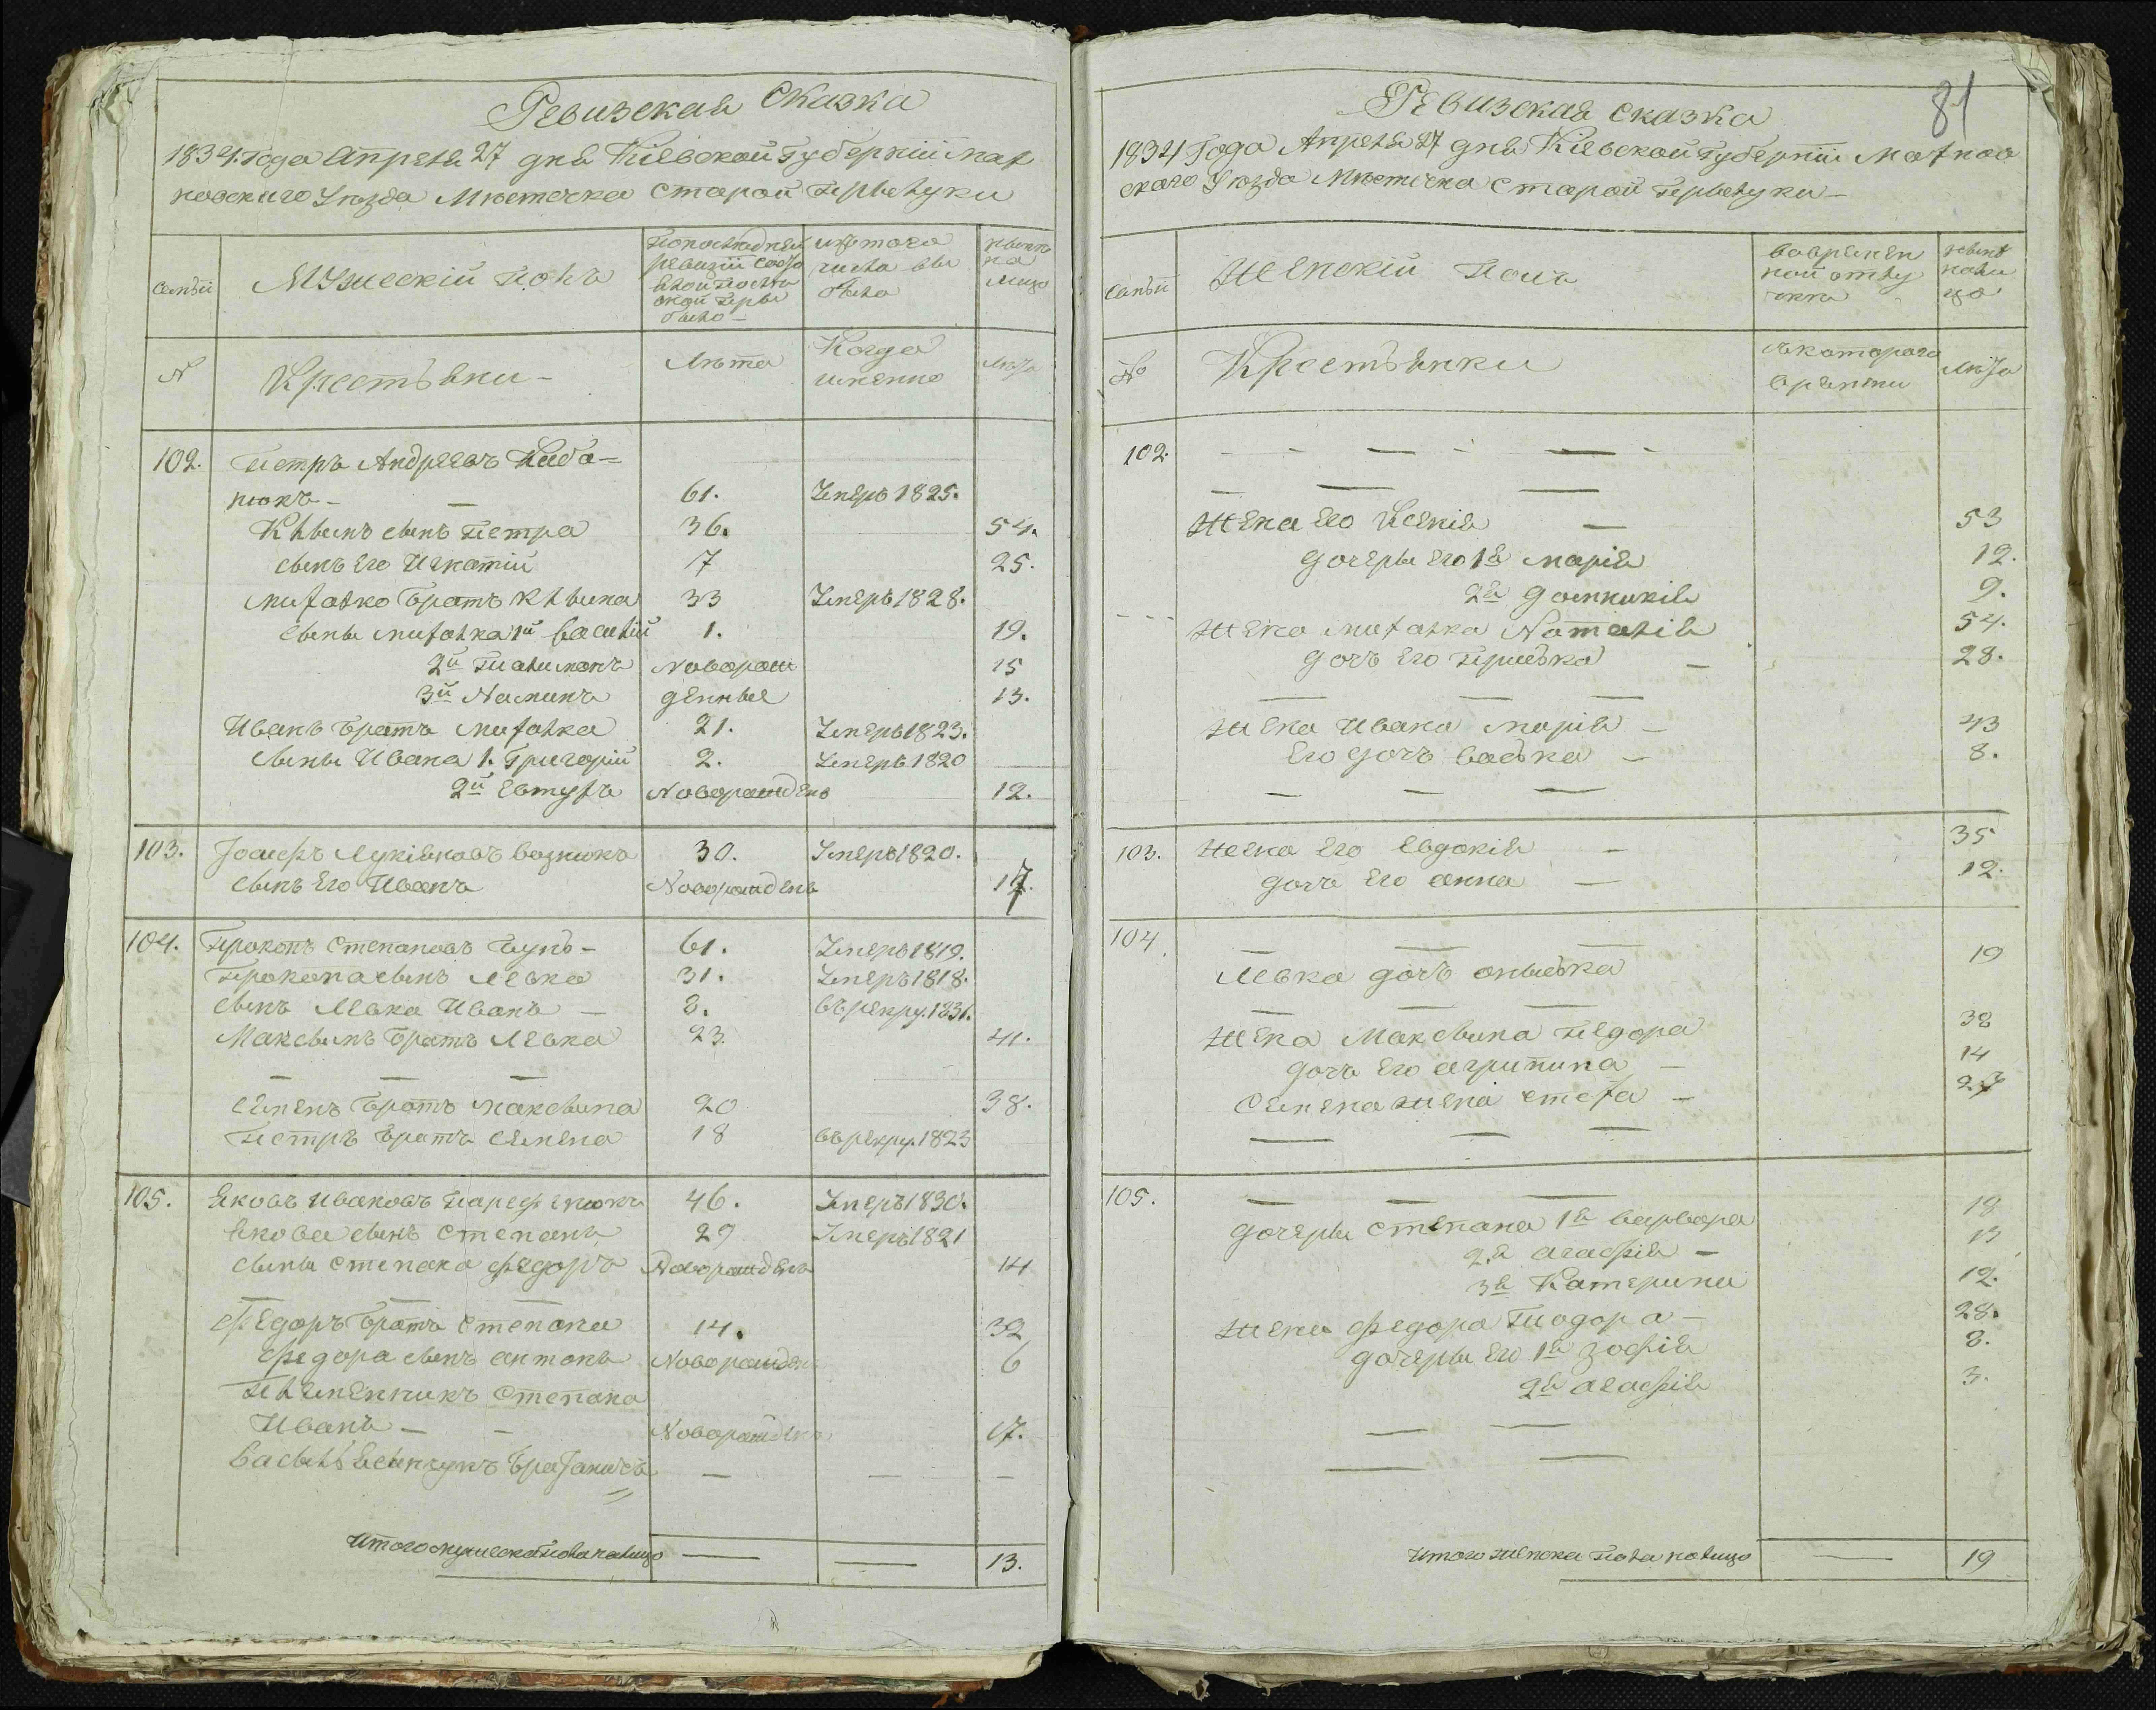 Ревизская Сказка
1834. года Апреля 27 дня Кіевской Губерніи Мах
новскаго Уѣзда Мѣстечка Старой Прилуки
Семьи
Мужескій Полъ
По последней
ревизіи состо
было
изъ того
числа вы
было
нынѣ
на
лицо
№
Крестьяни -
Лѣта
Когда
именно
Лѣта
102.
Петръ Андреевъ
нюкъ -
61.
Умеръ 1825.
Климъ сынъ Петра
36.
54.
сынъ Его Игнатій
7
25.
Михалко братъ Клима
33
Умеръ 1828.
сыны Михалка 1й Василій
1.
19.
2й
Новорож
15
3й
денные
13.
Иванъ братъ Михалка
21.
Умеръ 1823.
сыны Ивана 1. Григорій
2.
Умеръ 1820
2й Евтухъ
Новорожденъ
12.
103.
Іосифъ Лукіяновъ Вознюкъ
30.
Умеръ 1820.
сынъ Его Иванъ
Новорожденъ
17.
104.
Прокопъ Степановъ
61.
Умеръ 1819.
Прокопа сынъ Левко
31.
Умеръ 1818.
сынъ Левка Иванъ -
8.
въ рекру. 1831.
Максымъ братъ Левка
23.
41.
Семенъ братъ Максыма
20
38.
Петръ братъ Семена
18
въ рекру. 1823
105.
Яковъ Ивановъ Парефенюкъ
46.
Умеръ 1830.
Якова сынъ Степанъ
29
Умеръ 1821
сыны Степана Федоръ
Новорожденъ
14
Федоръ братъ Степана
14.
32
Федора сынъ Антонъ
Новорожденъ
6
Племенникъ Степана
Иванъ -
Новорожденъ
17.
Итого мужеска пола налицо
13.
81
Ревизская сказка
1834 Года Апреля 27 дня Кіевской Губерніи Махнов
скаго Уѣзда Мѣстечка Старой Прилуки -
Семьи
Женскій Полъ
во времен
ной отлу
чкѣ
нынѣ
нали
цо
№
Крестьянки
съ котораго
времени
Лѣта
102.
Жена Его Ксенія
53
дочеры Его 1я Марія
12.
2я Домникія
9.
Жена Михалка Наталія
54.
дочъ Его Приська
28.
Жена Ивана Марія -
43
Его дочъ Васька -
8.
103.
Жена Его Евдокія -
35
дочъ Его Анна -
12.
104.
Левка дочъ Оныська
19
Жена Максыма Педора
38
дочъ Его Агрипина -
14
Семена жена Стеха -
27
105.
дочеры Степана 1я Варвара
18
2я Агафія -
13
3я Катерина
12.
Жена Федора Тиодора -
28.
дочеры Его 1я Зофія
8.
2я Агафія
3.
Итого женска пола налицо
19